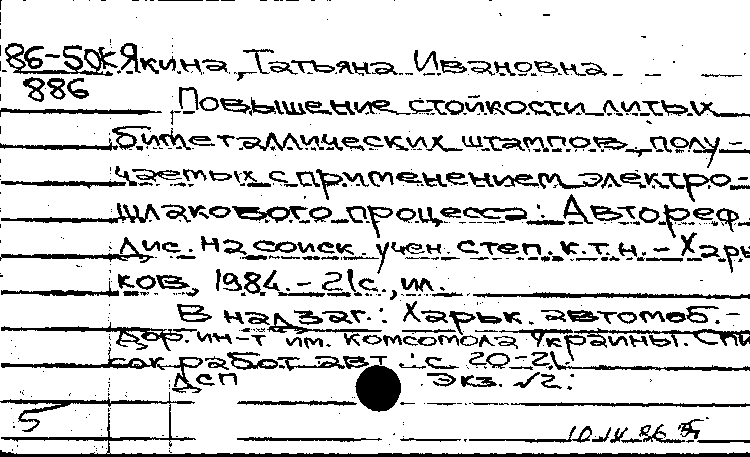 86-50К Якина, Татьяна Ивановна
886
Повышение стойкости литых
биметаллических штампов, полу-
чаемых с применением электро-
шлакового процесса: Автореф.
дис. на соиск. учен. степ. к.т.н. - Харь
ков, 1984. - 21с., ил.
В надзаг.: Харьк. автомоб.-
дор. ин-т им. комсомола Украины. Спи
сок работ авт.: с. 20-21.
ДСП Экз. √2:
5
10 IV 86